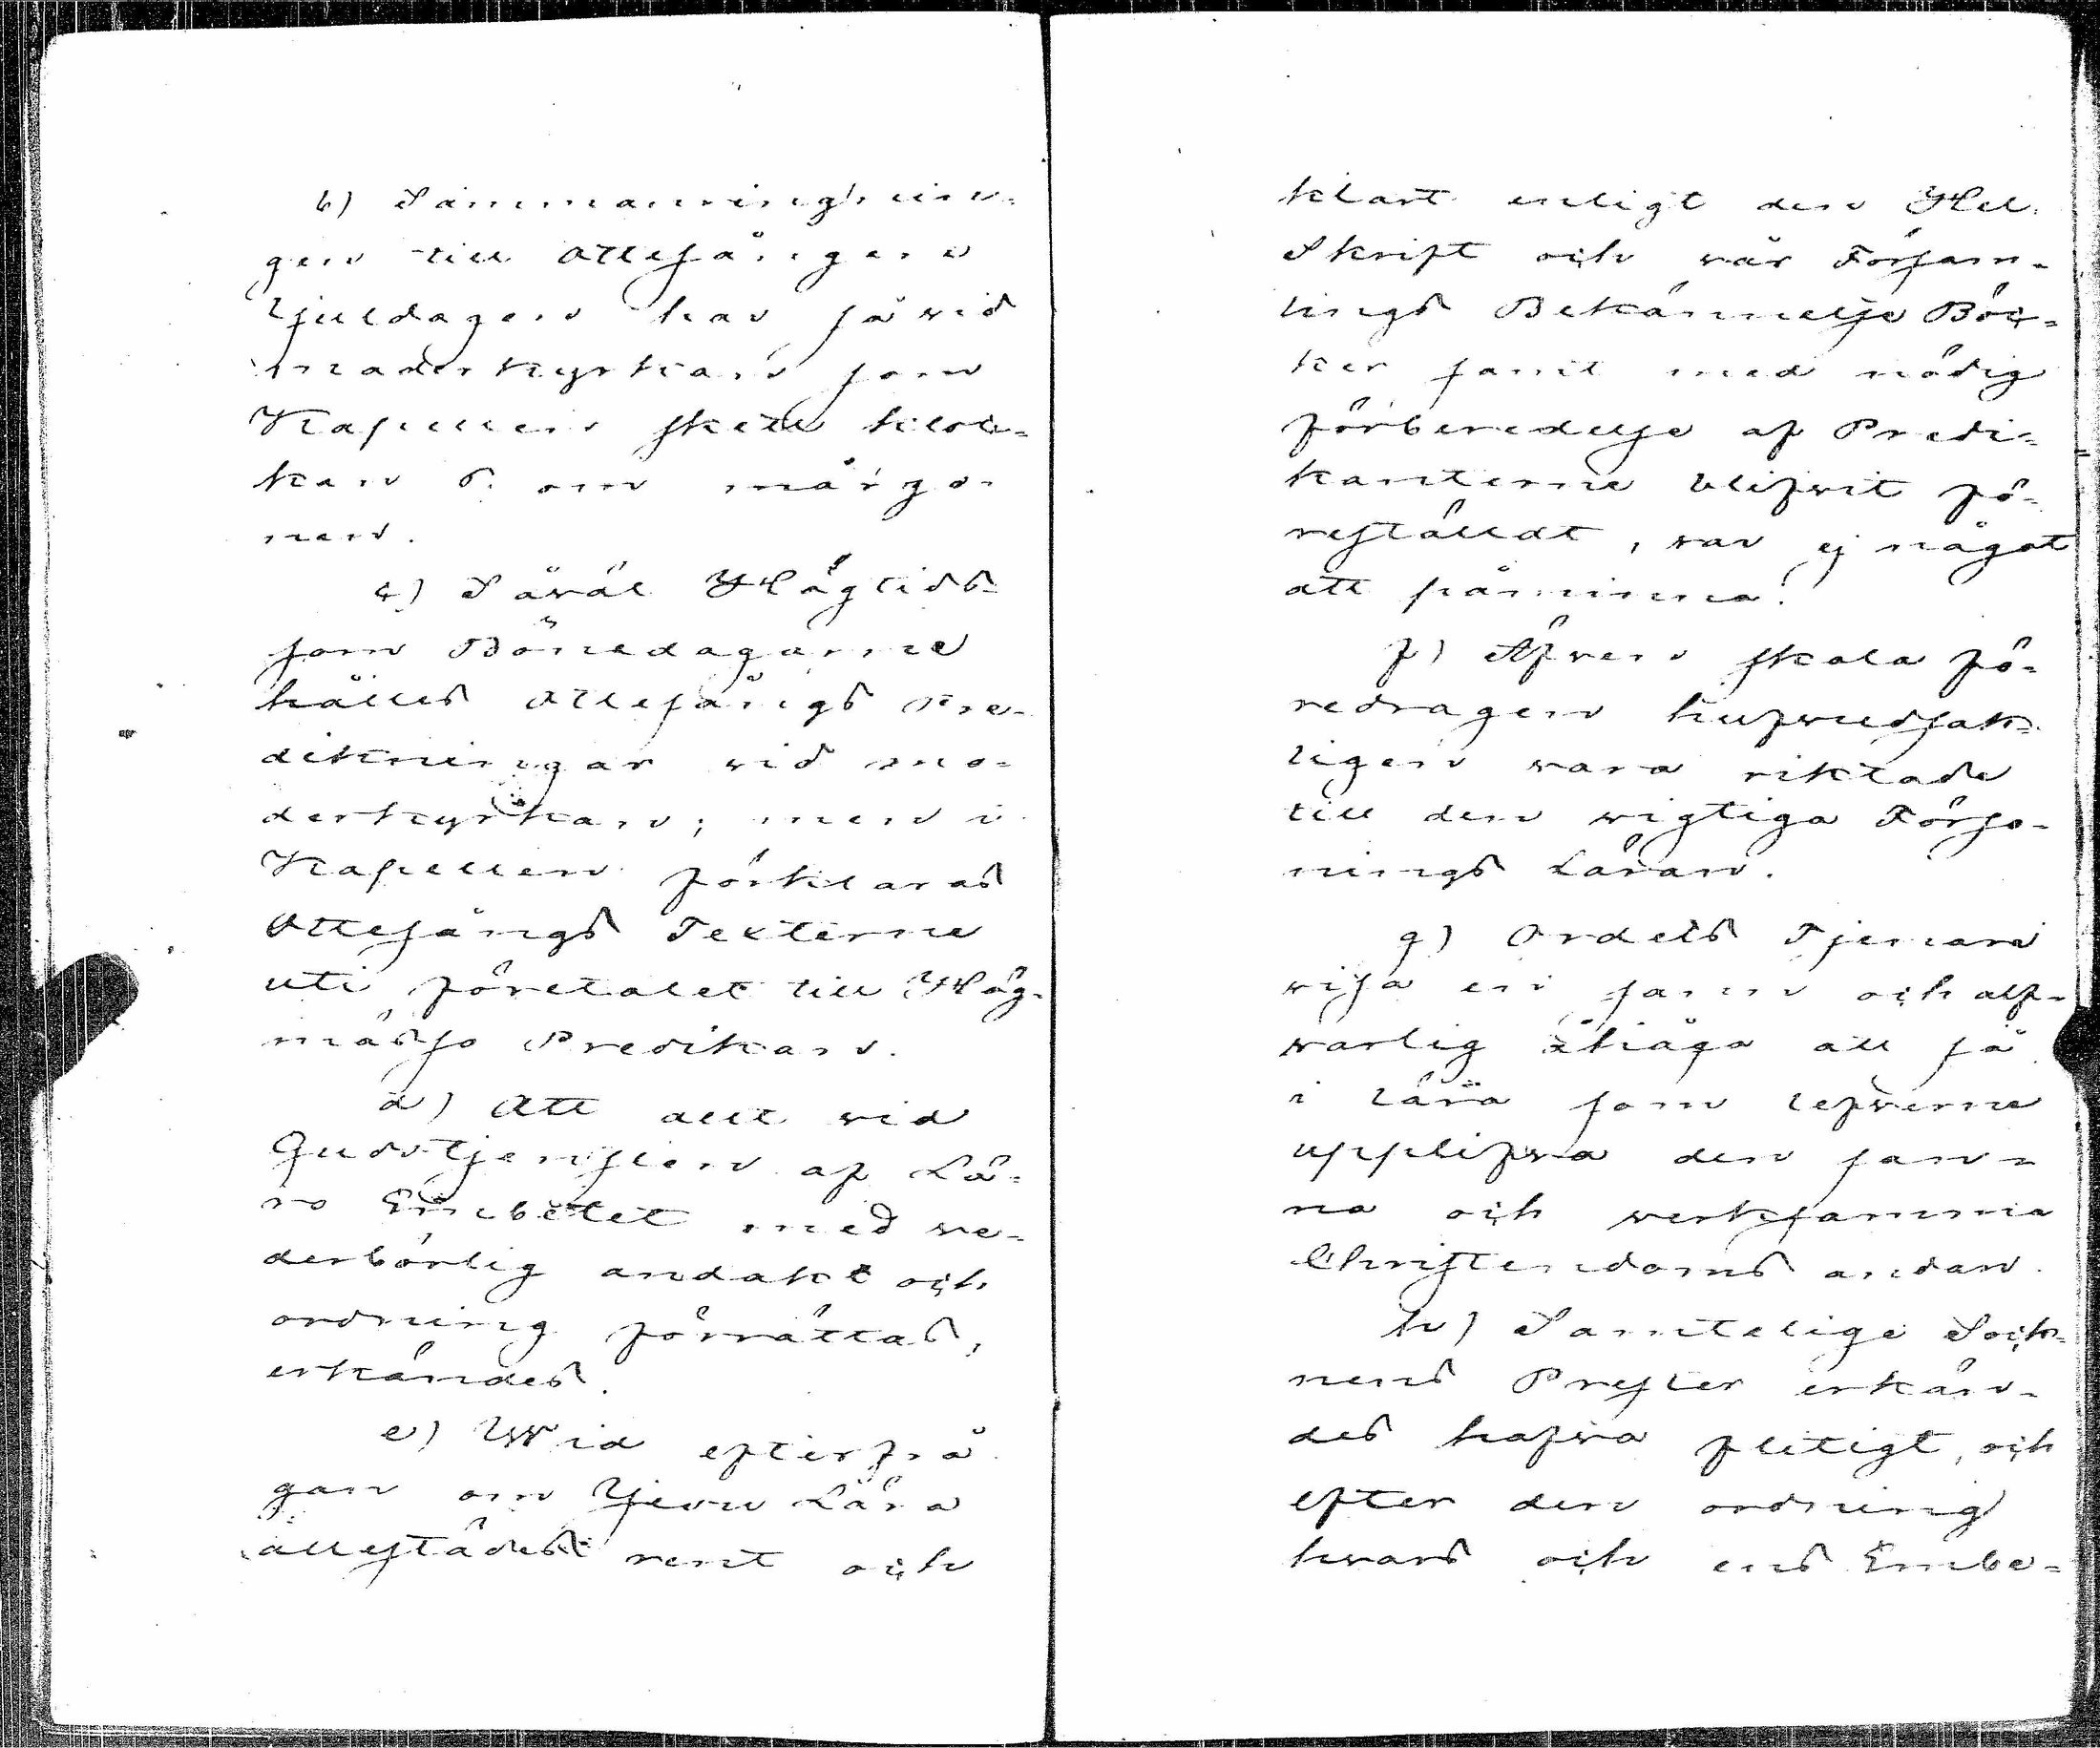 b) Sammanringnin-
gen till Ottesången
Juldagen har så wid
moderkyrkan som
Kapellen skett kloc-
kan 6. om mårgo-
nen.
c) Såväl Högtids-
som Bönedagarne
hålles Ottesångs Pre-
dikningar wid mo-
derkyrkan; men i
Kapellen förklaras
Ottesångs Texterne
uti företalet till Hög-
mässo Predikan.
d) Att allt wid
Gudstjensten af Lä-
ro Embetet med we-
derbörlig andakt och
ordning förrättas,
erkändes.
e) Wid efterfrå
gan om Jesu Lära
allestädes rent och
klart enligt den Hel.
Skrift och wår Försam-
lings Bekännelse Böc-
ker samt med nödig
förberedelse af Predi-
kanterne blifwit fö-
restäldt, war ej något
att påminna.
f) Äfwen skola fö-
redragen hufwudsak-
ligen wara riktade
till den wigtiga Förso-
nings Läran.
g) Ordets Tjenare
wisa en sann och alf-
warlig åhåga att så
i lära som lefwerne
upplifwa den san-
na och werksamma
Christendoms andan.
h) Samtelige Sock-
nens Prester erkän-
des hafwa flitigt, och
efter den ordning
hwars och ens Embe-